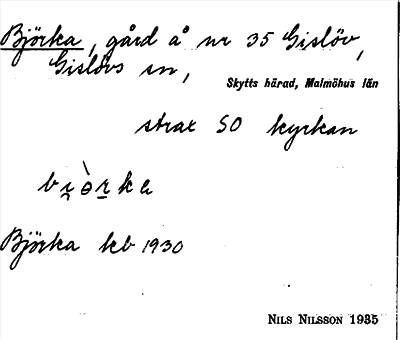 Björka, gård å nr 35 Gislöv,
Gislövs sn,
Skytts härad, Malmöhus län
strax SO kyrkan
bi̯ɵ̀rka
Björka kb 1930
NILS NILSSON 1935